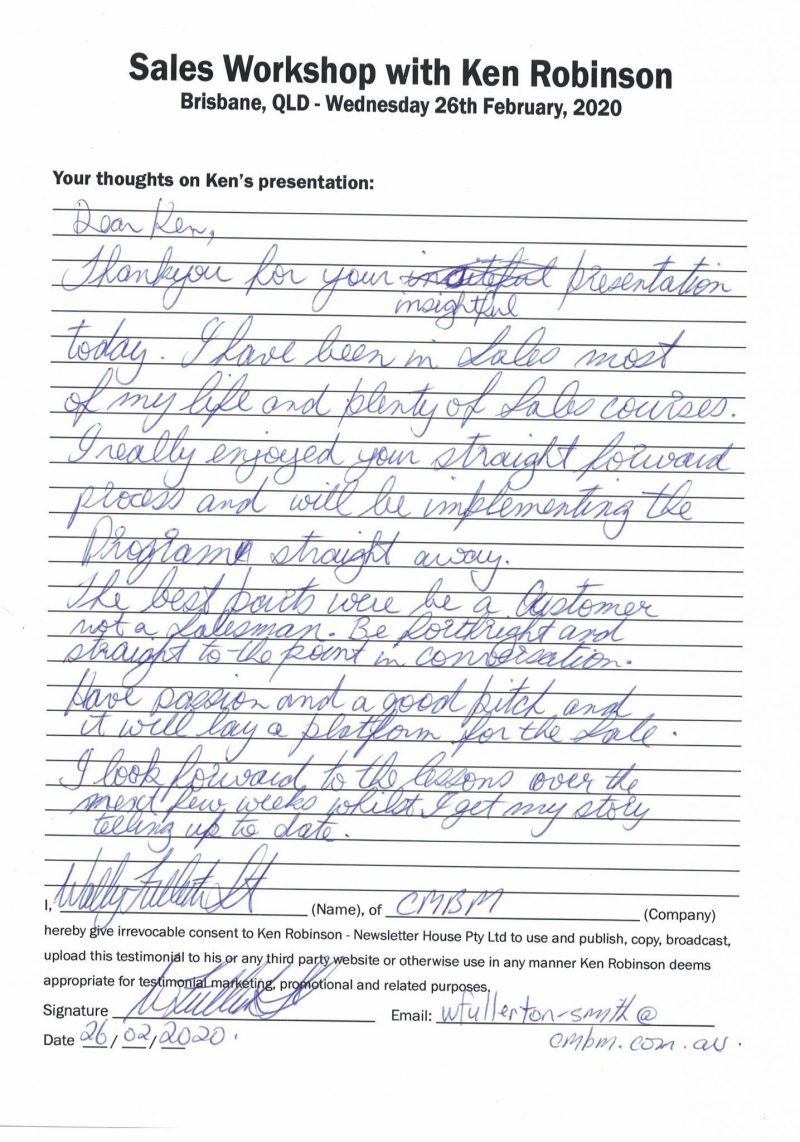 Sales Workshop with Ken Robinson
Brisbane, QLD - Wednesday 26th February, 2020
Your thoughts on Ken's presentation:
Dear Ken,
Thankyou for your presentation
insightful
today. I have been in Sales most
of my life and plenty of Sales courses.
I really enjoyed your straight forward
process and will be implementing the
Program straight away.
The best parts were be a Customer
not a Salesman. Be forthright and
straight to the point in conversation.
Have passion and a good pitch and
it will lay a platform for the Sale.
I look forward to the lessons over the
next few weeks whilst I get my story
telling up to date.
I, Wally (Name), of CMBM (Company)
hereby give irrevocable consent to Ken Robinson - Newsletter House Pty Ltd to use and publish, copy, broadcast,
upload this testimonial to his or any third party website or otherwise use in any manner Ken Robinson deems
appropriate for testimonial marketing, promotional and related purposes.
Signature Email: wfullerton-smith@
Date 26/02/2020. cmbm.com.au.